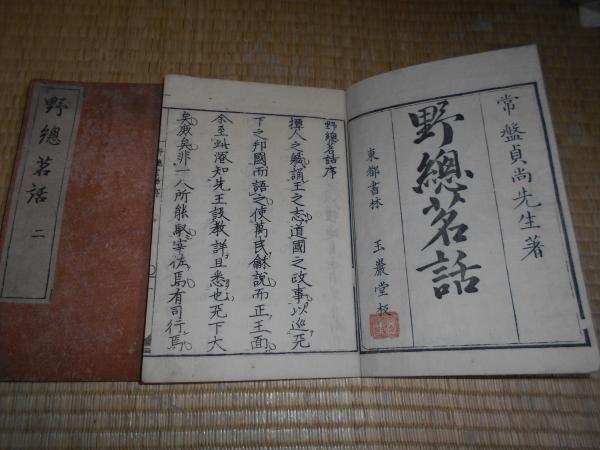 常盤貞尚先生著
野總茗話
東都書林 玉巖堂梓
野總茗話序
撢人之職誦王之志道國之政事以巡天
下之邦國而語之使萬民龢說而正王面
余至此深知先王設教詳且悉也天下大
矣衆矣非一人所能馭宰佐焉有司行焉
野總茗話 二